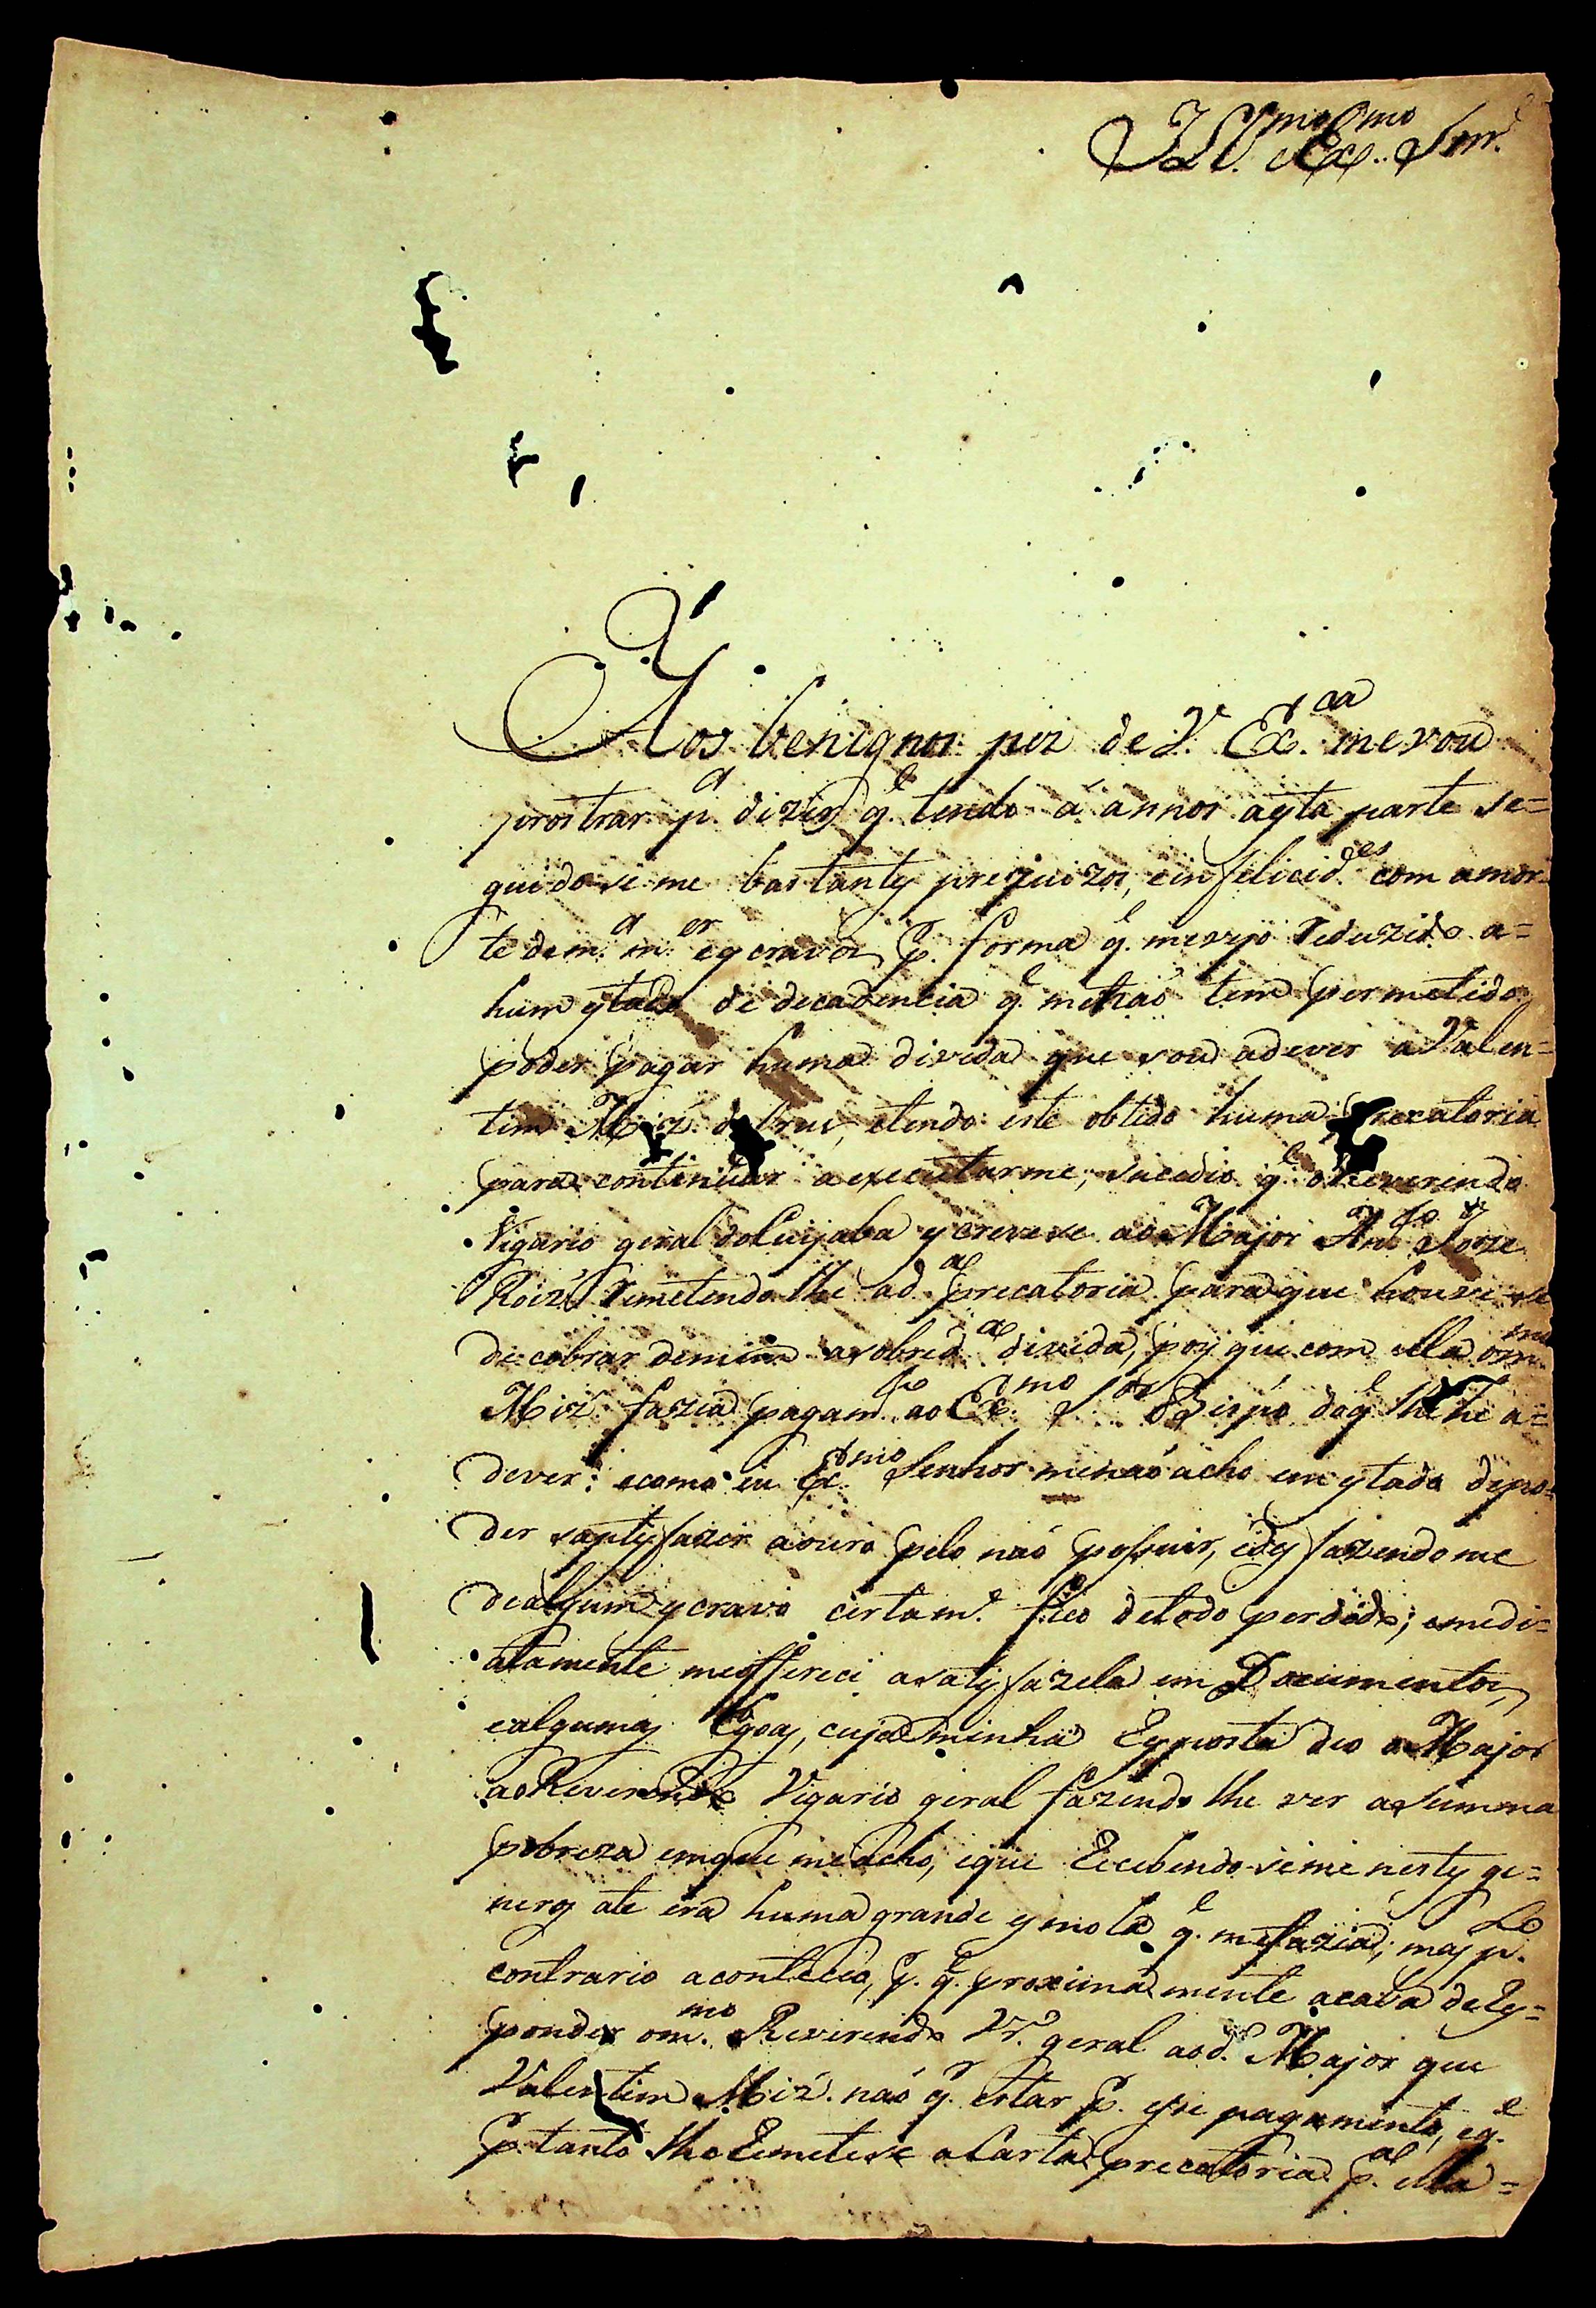 Ill.mo Ex.mo Snr.
Aos benignos pez de V. Ex.ca me vou
prostrar p.a dizer q.e tendo á annos aesta parte se=
guido se me bastantes prejuizos, e infelicid.es com amor=
te de m.a m.er escravos, p.r forma q.e mevejo reduzido a=
hum estado de decadencia q.e menaó tem permetido
poder pagar huma divida que sou adever a Valen=
tim Miz' da Crus, etendo este obtido huma precatoria
para continuar aexecutarme, sucedio q.e o Reverendo
Vigario geral do Cuyaba escreve-se ao Major Ant.o Joze
Roiz' remetendo lhe ad.a precatoria para que houve-se
de cobrar demim asobred.a divida, pois que com ella om.mo
Miz' fazia pagam.to ao Ex.mo S.or Bispo doq.e lhe he a=
dever: ecomo eu Ex.mo Senhor menaó ácho em estado depo=
der sastisfazer aouro pelo naó possuir, edesfazendome
dealgum escravo certam.e fico detodo perdido; emedi=
atamente meoffereci asatisfazela em Documentos,
ealgumas Egoas, cuja minha Resposta deo o Major
ao Reverendo Vigario geral fazendo lhe ver a summa
pobreza emque me ácho, eque Recebendo-seme nestes ge=
neros ate era huma grande esmola q.e mefazia; mas p.lo
contrario aconteceo, p.r q.e proximamente acaba de Res=
ponder om.mo Reverendo Vr.o geral aod.o Major que
Valentim Miz'. naó q.r estar p.r esse pagamento, eq.e
p.r tanto lhe Remetese a Carta precatoria p.a ella=